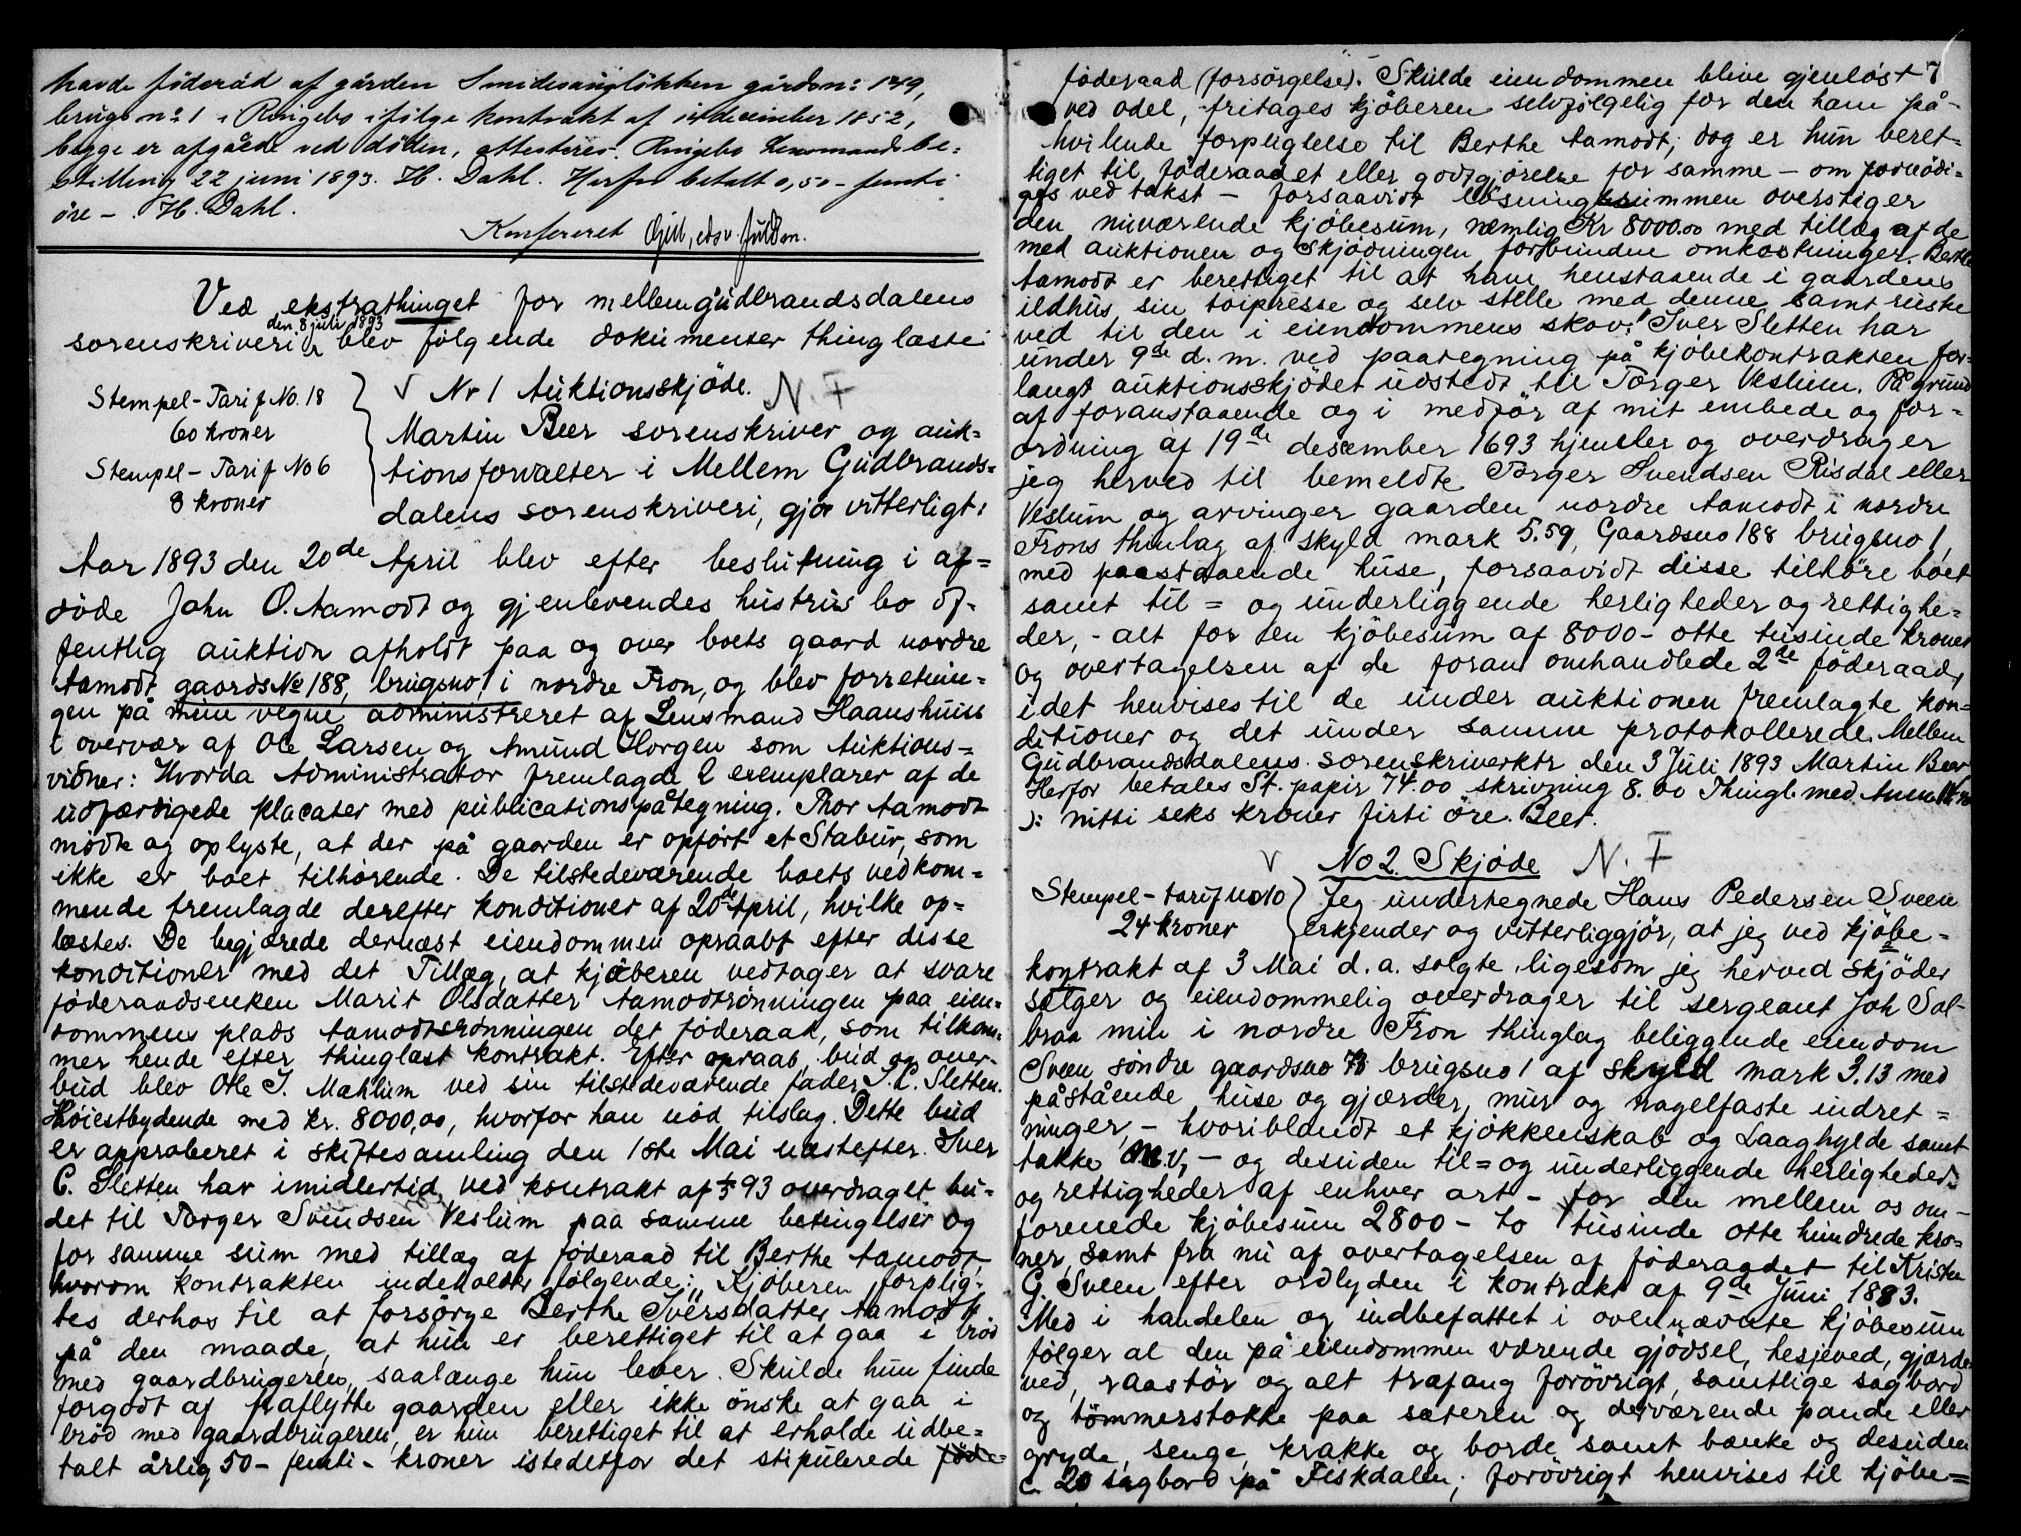 havde föderåd af gården Smidesanglökken gårdsn: 149,
brugs no 1 i Ringebo ifölge kontrakt af 14 december 1852,
begge er afgåede ved döden, attesteres. Ringebo Lensmandsbe=
stilling 22 juni 1893. H. Dahl. Herfor betalt 0,50 - femti
öre - . H. Dahl.
Konfereret
Ved ekstrathinget for mellem gudbrandsdalens
den 8 juli 1893
sorenskriveri blev følgende dokumenter thinglæste
Stempel-Tarif No. 18
60 kroner
Stempel-Tarif No 6
8 kroner
√ Nr 1 Auktionsskjøde. N. F
Martin Beer sorenskriver og auk=
tionsforvalter i Mellem Gudbrands=
dalens sorenskriveri, gjør vitterligt:
Aar 1893 den 20de April blev efter beslutning i af=
døde John O. Aamodt og gjenlevendes hustrus bo of-
fentlig auktion afholdt paa og over boets gaard nordre
Aamodt gaards No 188, brugsno 1 i nordre Fron, og blev forretnin=
gen på mine vegne administreret af Lensmand Haanshuus
i overvær af Ole Larsen og Amund Horgen som Auktions=
vidner: Hvorda Administrator fremlagde 2 exemplarer af de
udfærdigede placater med publicationspåtegning. Thor Aamodt
mødte og oplyste, at der på gaarden er opført et Stabur, som
ikke er boet tilhørende. De tilstedeværende boets vedkom=
mende fremlagde derefter konditioner af 20de April, hvilke op=
læstes. De begjærede dernæst eiendommen opraabt efter disse
konditioner med det Tillæg, at kjøberen vedtager at svare
föderaadsenken Marit Olsdatter Aamodtrønningen paa eien=
dommens plads Aamodtsrønningen det føderaad, som tilkom=
mer hende efter thinglæst kontrakt. Efter opraab, bud og over-
bud blev Ole I. Mæhlum ved sin tilstedeværende fader I. C. Sletten
Høiestbydende med kr. 8000,00, hvorfor han nød tilslag. Dette bud
er approberet i skiftesamling den 1ste Mai næstefter. Iver
C. Sletten har imidlertid ved kontrakt af 1/5 93 overdraget bu=
det til Torger Svendsen Veslum paa samme betingelser og
for samme sum med tillæg af føderaad til Berthe Aamodt,
hvorom kontrakten indeholder følgende: "Kjøberen forplig-
tes derhos til at forsørge Berthe Iversdatter Aamodt
på den maade, at hun er berettiget til at gaa i brød
med gaardbrugeren, saalænge hun lever. Skulde hun finde
forgodt af fraflytte gaarden eller ikke ønske at gaa i
brød med gaardbrugeren, er hun berettiget til at erholde udbe=
talt årlig 50 - femti - kroner istedetfor det stipulerede föde=
7
föderaad (forsørgelse). Skulde eiendommen blive gjenløst
ved odel, fritages kjøberen selvfølgelig for den ham på-
hvilende forpligtelse til Berthe Aamodt; dog er hun beret=
tiget til föderaadet eller godtgjørelse for samme - om fornødi=
ges ved takst - forsaavidt løsningssummen overstiger
den nuværende kjøbesum, nemlig Kr 8000.00 med tillæg af de
med auktionen og Skjødningen forbundne omkostninger. Berthe
Aamodt er berettiget til at have henstaaende i gaardens
ildhus sin toipresse og selv stelle med denne samt ruske
ved til den i eiendommens skov." Iver Sletten har
under 9de d. m. ved paategning på kjøbekontrakten for=
langt auktionsskjødet udstedt til Torger Veslum. På grund
af foranstaaende og i medfør af mit embede og for=
ordning af 19de desember 1693 hjemler og overdrager
jeg herved til bemeldte Torger Svendsen Risdal eller
Veslum og arvinger gaarden nordre Aamodt i nordre
Frons thinlag af skyld mark 5.59, Gaardsno 188 brugsno 1,
med paastaaende huse, forsaavidt disse tilhøre boet
samt til= og underliggende herligheder og rettighe=
der, - alt for en kjøbesum af 8000 - otte tusinde kroner
og overtagelsen af de foran omhandlede 2de föderaad,
idet henvises til de under auktionen fremlagte kon=
ditioner og det under samme protokollerede. Mellem
Gudbrandsdalens sorenskriverktr den 3 Juli 1893 Martin Beer
Herfor betales St. papir 74.00 skrivning 8.00 Thingl. med
): nitti seks kroner firti öre. Beer.
√ No 2. Skjøde N. F
Stempel-tarif no 10
24 kroner
Jeg undertegnede Hans Pedersen Sveen
erkjender og vitterliggjör, at jeg ved kjøbe=
kontrakt af 3 Mai d. a. solgte, ligesom jeg herved skjøder
sælger og eiendommelig overdrager til sergeant Joh Sol-
braa min i nordre Fron thinglag beliggende eiendom
Sveen søndre gaardsno 73 brugsno 1 af skyld mark 3.13 med
påstående huse og gjærder, mur og nagelfaste indret=
ninger, - hvoriblandt et kjøkkenskab og Laaghylde samt
takke m.v, - og desuden til= og underliggende herligheder
og rettigheder af enhver art - for den mellem os om-
forenede kjøbesum 2800 - to tusinde otte hundrede kro=
ner, samt fra nu af overtagelsen af föderaadet til Kristen
G. Sveen efter ordlyden i kontrakt af 9de Juni 1883.
Med i handelen og indbefattet i ovennævnte kjøbesum
følger al den på eiendommen værende gjödsel, hesjeved, gjærde
ved, raastør og alt træfang forøvrigt, samtlige sagbord
og tømmerstokke paa sæteren og derværende pande eller
gryde, senge, krakke og borde samt bænke og desuden
c. 20 sagbord på Fiskdalen; forøvrigt henvises til kjøbe=